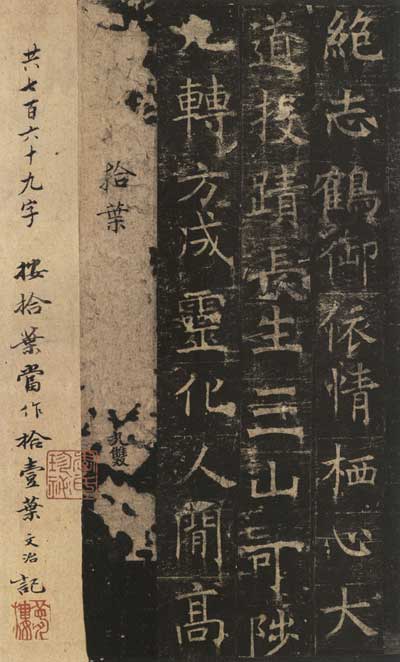 絶志鶴御依情栖心大
道投蹟長生三山可陟
九轉方成靈化人間髙
拾葉
共七百六十九字 按拾葉當作拾壹葉 文治記